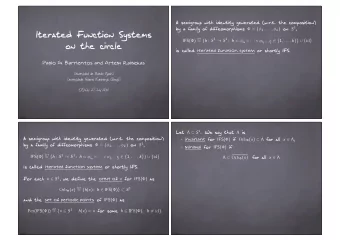 Iterated Function Systems
on the circle
Pablo G. Barrientos and Artem Raibekas
A semigroup with identity generated (w.r.t. the composition)
by a family of diffeomorphisms Φ = {ϕ₁, ..., ϕₖ} on S¹,
is called iterated function system or shortly IFS.
A semigroup with identity generated (w.r.t. the composition)
by a family of diffeomorphisms Φ = {ϕ₁, ..., ϕₖ} on S¹,
is called iterated function system or shortly IFS.
For each x ∈ S¹, we define the orbit of x for IFS(Φ) as
Orb_Φ(x) ≝ {h(x): h ∈ IFS(Φ)} ⊂ S¹
and the set of periodic points of IFS(Φ) as
Per(IFS(Φ)) ≝ {x ∈ S¹ : h(x) = x for some h ∈ IFS(Φ), h ≠ id}.
Let Λ ⊂ S¹. We say that Λ is
invariant for IFS(Φ) if Orb_Φ(x) ⊂ Λ for all x ∈ Λ,
minimal for IFS(Φ) if
for all x ∈ Λ